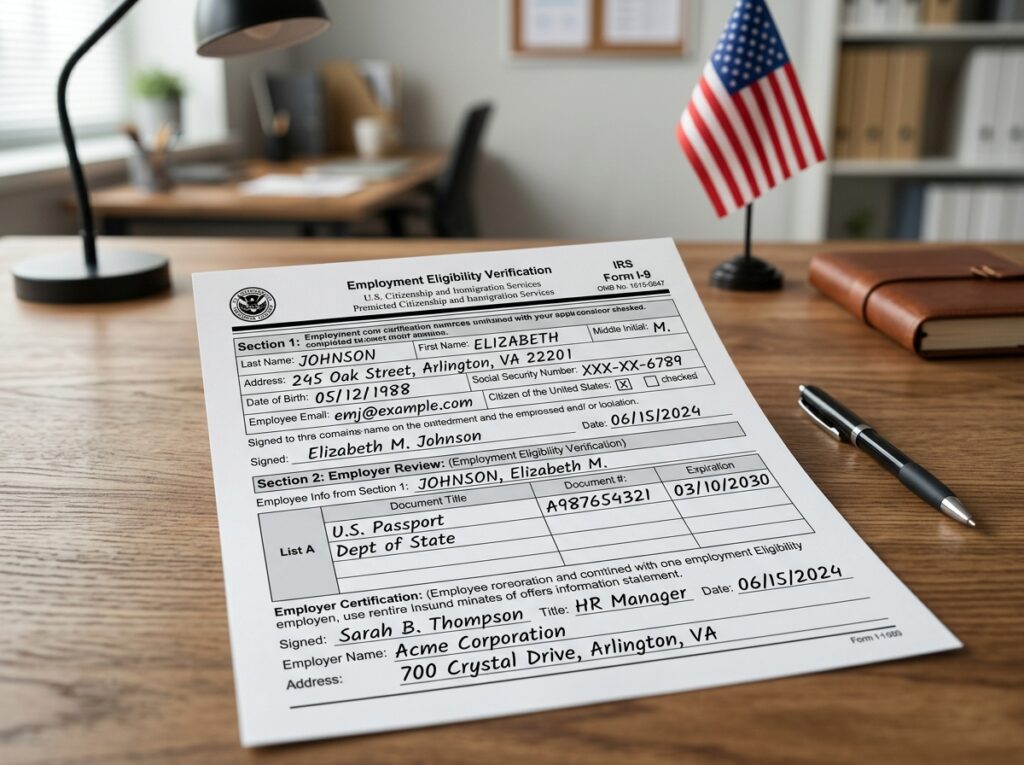 Employment Eligibility Verification
U.S. Citizenship and Iomigration Services
Premicted Citizenship and banigration Services
IRS
Form I-9
OMB No. 1615-0847
Section 1: Employment
completed
Last Name: JOHNSON First Name: ELIZABETH Middle Initial: M.
Address: 245 Oak Street, Arlington, VA 22201
Date of Birth: 05/12/1988 Social Security Number: XXX-XX-6789
Employee Email: emj@example.com Citizen of the United States: X checked
Signed to name on the and the and/ or
Signed: Elizabeth M. Johnson Date: 06/15/2024
Section 2: Employer Review: (Employment Eligibility Verification)
Employee Info from Section 1: JOHNSON, Elizabeth M.
Document Title Document #: Expiration
List A
U.S. Passport A987654321 03/10/2030
Dept of State
Employer Certification: (Employee and with one employment Eligibility
employen, use rentire Insund minates of offers information statement.
Signed: Sarah B. Thompson Title: HR Manager Date: 06/15/2024
Employer Name: Acme Corporation
Address: 700 Crystal Drive, Arlington, VA
Form